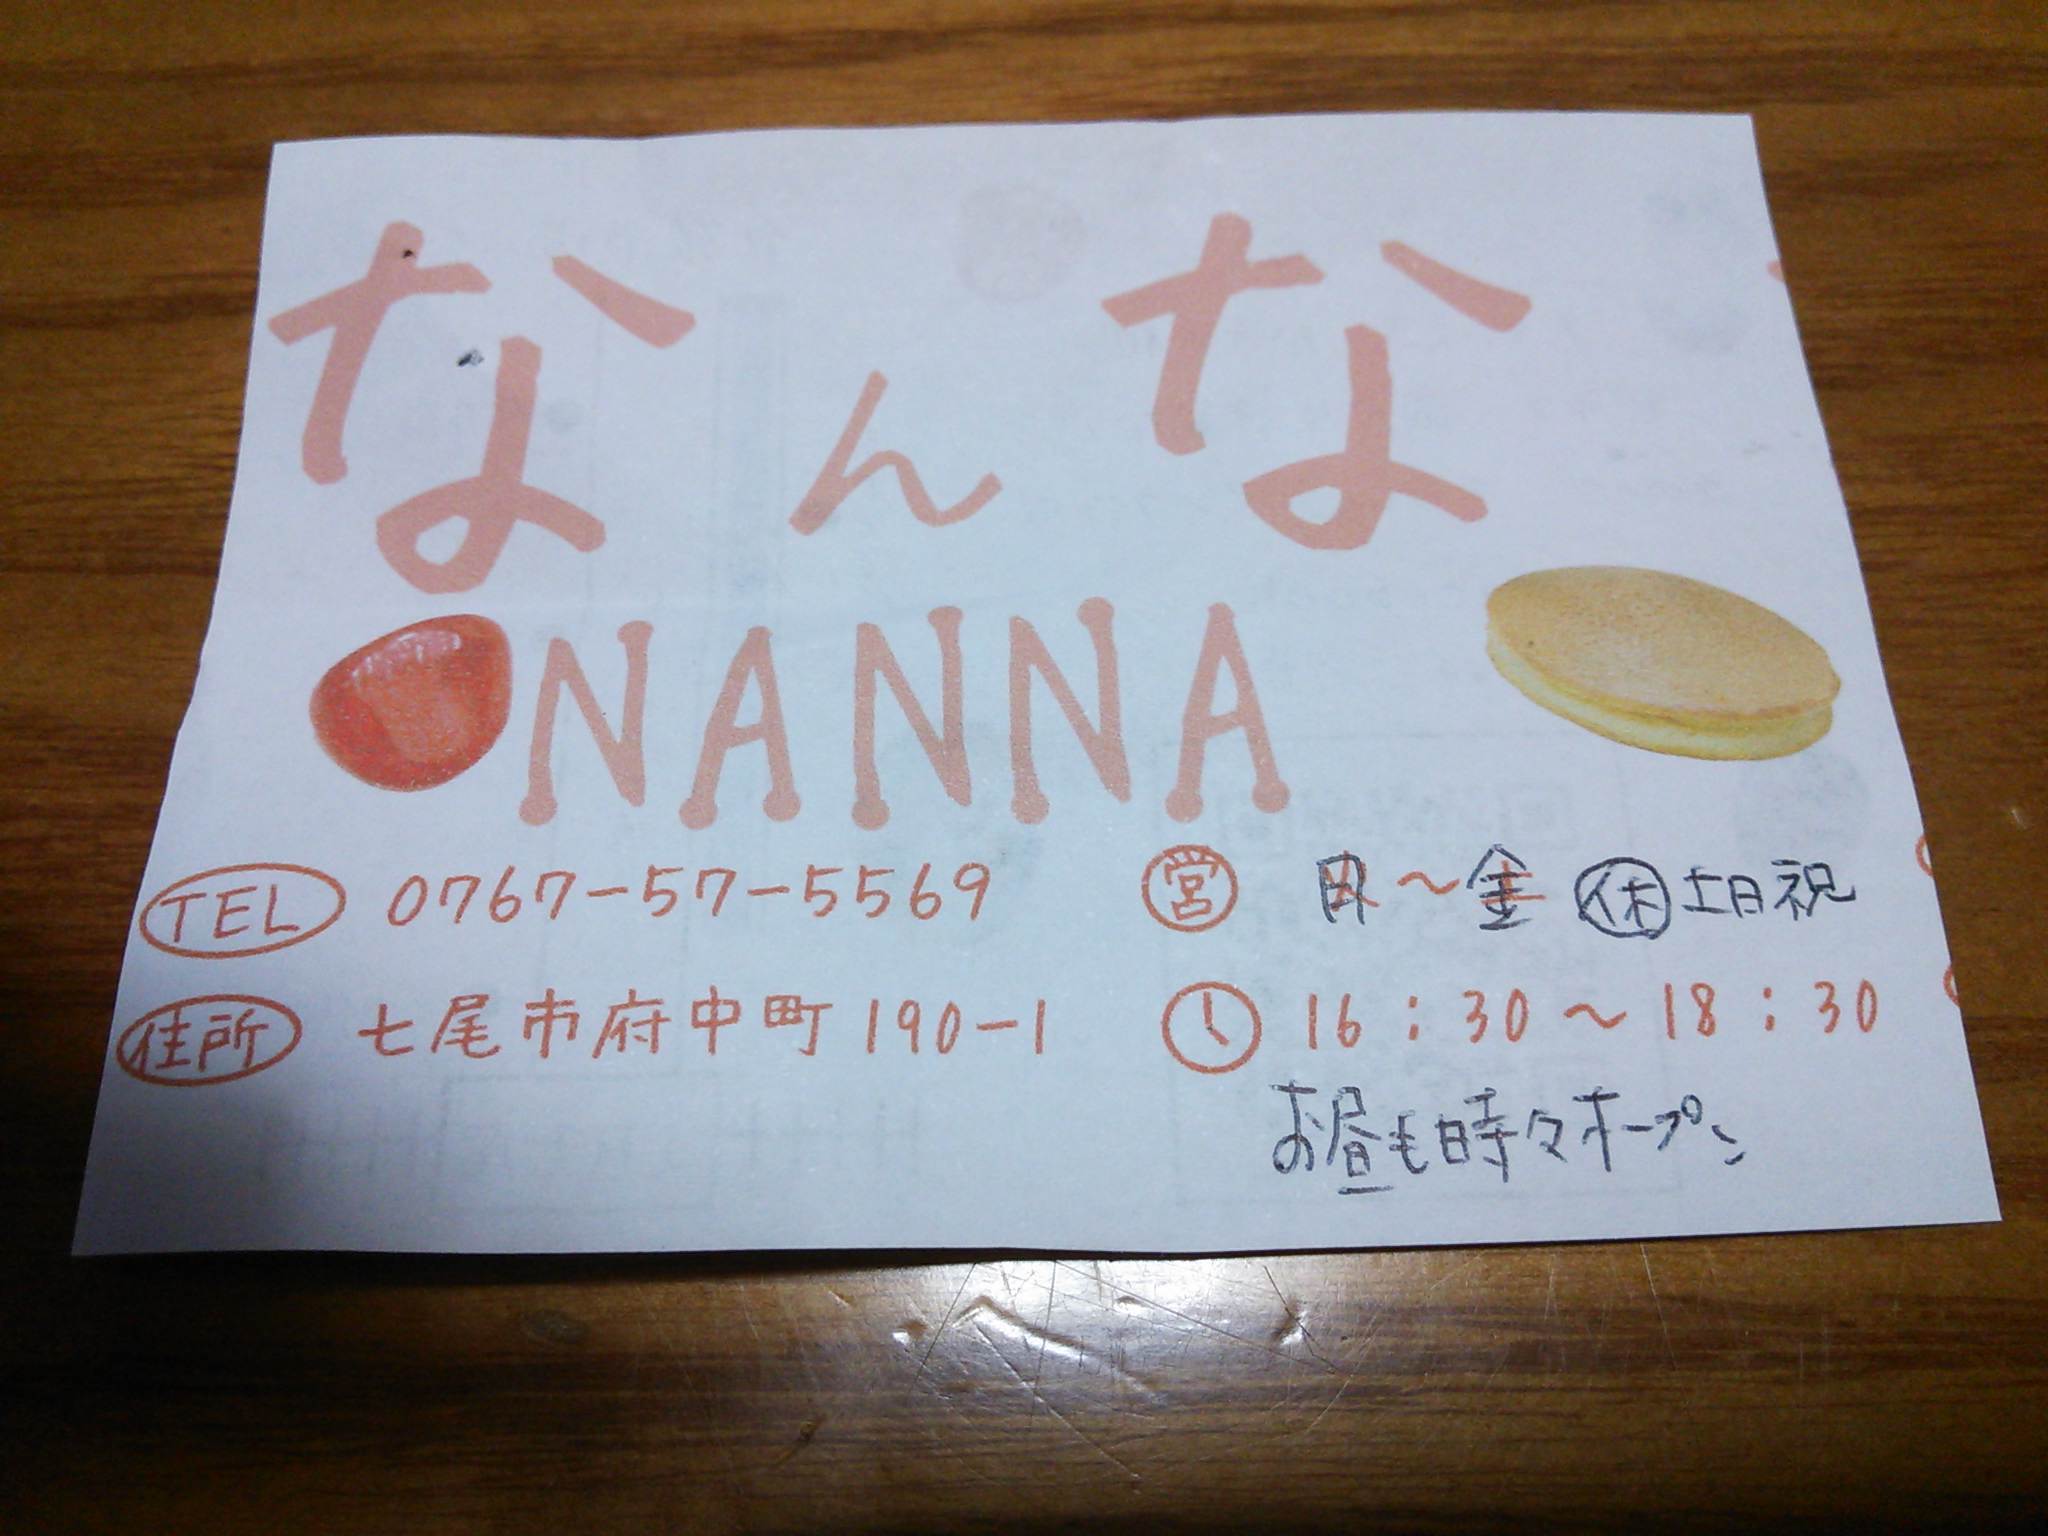 なんな
NANNA
TEL 0767-57-5569
住所 七尾市府中町190-1
営 月～金 休 土日祝
16：30～18：30
お昼も時々オープン